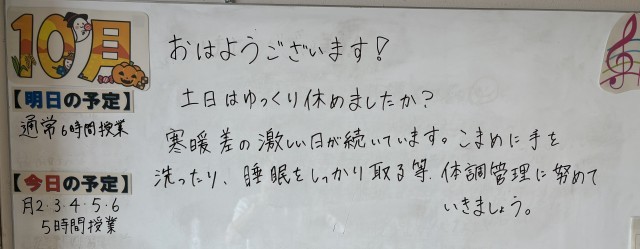 10月
おはようございます!
【明日の予定】
通常6時間授業
土日はゆっくり休めましたか?
寒暖差の激しい日が続いています。こまめに手を
洗ったり、睡眠をしっかり取る等、体調管理に努めて
いきましょう。
【今日の予定】
月2·3·4·5·6
5時間授業